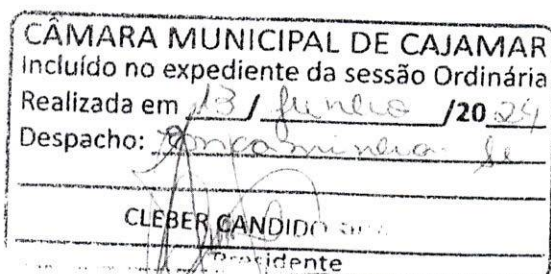 CÂMARA MUNICIPAL DE CAJAMAR
Incluído no expediente da sessão Ordinária
Realizada em 13 / Junho /20 24
Despacho: Encaminha-se
CLEBER CANDIDO
Presidente